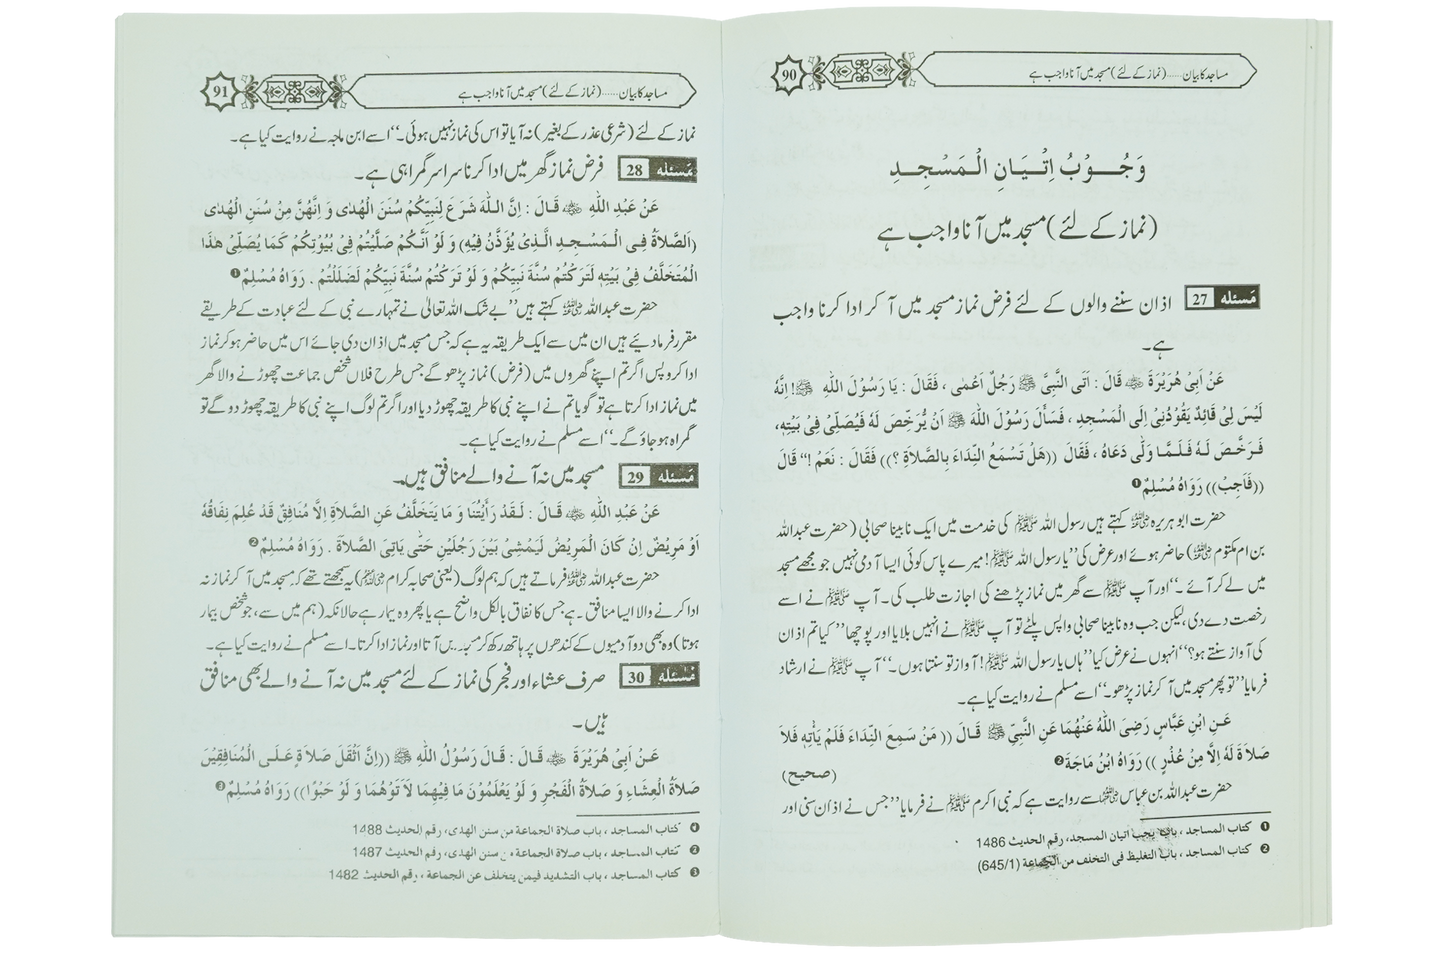 90
مساجد کا بیان......(نماز کے لئے) مسجد میں آنا واجب ہے
وَجُوْبُ اِتْیَانِ الْمَسْجِدِ
(نماز کے لئے) مسجد میں آنا واجب ہے
مَسئلہ 27 اذان سننے والوں کے لئے فرض نماز مسجد میں آ کر ادا کرنا واجب
ہے۔
عَنْ اَبِیْ هُرَیْرَةَ ﷺ قَالَ : اَتَی النَّبِیَّ ﷺ رَجُلٌ اَعْمٰی ، فَقَالَ : یَا رَسُوْلَ اللّٰهِ ﷺ! اِنَّهُ
لَیْسَ لِیْ قَائِدٌ یَقُوْدُنِیْ اِلَی الْمَسْجِدِ ، فَسَأَلَ رَسُوْلَ اللّٰهَ ﷺ اَنْ یُّرَخِّصَ لَهُ فَیُصَلِّیَ فِیْ بَیْتِهِ،
فَرَخَّصَ لَهُ فَلَمَّا وَلّٰی دَعَاهُ ، فَقَالَ ((هَلْ تَسْمَعُ النِّدَاءَ بِالصَّلاَةِ ؟)) فَقَالَ : نَعَمْ !“ قَالَ
((فَاَجِبْ)) رَوَاهُ مُسْلِمٌ❶
حضرت ابو ہریرہ کہتے ہیں رسول اللہ ﷺ کی خدمت میں ایک نابینا صحابی (حضرت عبداللہ
بن ام مکتوم) حاضر ہوئے اور عرض کی ”یا رسول اللہ ﷺ! میرے پاس کوئی ایسا آدمی نہیں جو مجھے مسجد
میں لے کر آئے۔“ اور آپ ﷺ سے گھر میں نماز پڑھنے کی اجازت طلب کی۔ آپ ﷺ نے اسے
رخصت دے دی، لیکن جب وہ نابینا صحابی واپس پلٹے تو آپ ﷺ نے انہیں بلایا اور پوچھا ”کیا تم اذان
کی آواز سنتے ہو؟“ انہوں نے عرض کیا ”ہاں یا رسول اللہ ﷺ! آواز تو سنتا ہوں۔“ آپ ﷺ نے ارشاد
فرمایا ”تو پھر مسجد میں آ کر نماز پڑھو۔“ اسے مسلم نے روایت کیا ہے۔
عَنِ ابْنِ عَبَّاسٍ رَضِیَ اللّٰهُ عَنْهُمَا عَنِ النَّبِیِّ ﷺ قَالَ (( مَنْ سَمِعَ النِّدَاءَ فَلَمْ یَأْتِهِ فَلاَ
صَلاَةَ لَهُ اِلَّا مِنْ عُذْرٍ )) رَوَاهُ ابْنُ مَاجَةَ❷ (صحیح)
حضرت عبداللہ بن عباس سے روایت ہے کہ نبی اکرم ﷺ نے فرمایا ”جس نے اذان سنی اور
❶ كتاب المساجد ، باب يجب اتيان المسجد، رقم الحديث 1486
❷ كتاب المساجد ، باب التغليظ فى التخلف من الجماعة (645/1)
91
مساجد کا بیان......(نماز کے لئے) مسجد میں آنا واجب ہے
نماز کے لئے (شرعی عذر کے بغیر) نہ آیا تو اس کی نماز نہیں ہوئی۔“ اسے ابن ماجہ نے روایت کیا ہے۔
مَسئلہ 28 فرض نماز گھر میں ادا کرنا سراسر گمراہی ہے۔
عَنْ عَبْدِ اللّٰهِ قَالَ : اِنَّ اللّٰهَ شَرَعَ لِنَبِیِّکُمْ سُنَنَ الْهُدٰی وَ اِنَّهُنَّ مِنْ سُنَنِ الْهُدٰی
(اَلصَّلاَةُ فِی الْمَسْجِدِ الَّذِیْ یُؤَذَّنُ فِیْهِ) وَ لَوْ اَنَّکُمْ صَلَّیْتُمْ فِیْ بُیُوْتِکُمْ کَمَا یُصَلِّیْ هٰذَا
الْمُتَخَلِّفُ فِیْ بَیْتِهِ لَتَرَکْتُمْ سُنَّةَ نَبِیِّکُمْ وَ لَوْ تَرَکْتُمْ سُنَّةَ نَبِیِّکُمْ لَضَلَلْتُمْ . رَوَاهُ مُسْلِمٌ❶
حضرت عبداللہ کہتے ہیں ”بے شک اللہ تعالیٰ نے تمہارے نبی کے لئے عبادت کے طریقے
مقرر فرما دیئے ہیں ان میں سے ایک طریقہ یہ ہے کہ جس مسجد میں اذان دی جائے اس میں حاضر ہو کر نماز
ادا کرو پس اگر تم اپنے گھروں میں (فرض) نماز پڑھو گے جس طرح فلاں شخص جماعت چھوڑنے والا گھر
میں نماز ادا کرتا ہے تو گویا تم نے اپنے نبی کا طریقہ چھوڑ دیا اور اگر تم لوگ اپنے نبی کا طریقہ چھوڑ دو گے تو
گمراہ ہو جاؤ گے۔“ اسے مسلم نے روایت کیا ہے۔
مَسئلہ 29 مسجد میں نہ آنے والے منافق ہیں۔
عَنْ عَبْدِ اللّٰهِ قَالَ : لَقَدْ رَأَیْتُنَا وَ مَا یَتَخَلَّفُ عَنِ الصَّلاَةِ اِلَّا مُنَافِقٌ قَدْ عُلِمَ نِفَاقُهُ
اَوْ مَرِیْضٌ اِنْ کَانَ الْمَرِیْضُ لَیَمْشِیْ بَیْنَ رَجُلَیْنِ حَتّٰی یَاتِیَ الصَّلاَةَ . رَوَاهُ مُسْلِمٌ❷
حضرت عبداللہ فرماتے ہیں کہ ہم لوگ (یعنی صحابہ کرام) یہ سمجھتے تھے کہ مسجد میں آ کر نماز نہ
ادا کرنے والا ایسا منافق ہے جس کا نفاق بالکل واضح ہے یا پھر وہ بیمار ہے حالانکہ (ہم میں سے، جو شخص بیمار
ہوتا) وہ بھی دو آدمیوں کے کندھوں پر ہاتھ رکھ کر آتا اور نماز ادا کرتا۔ اسے مسلم نے روایت کیا ہے۔
مَسئلہ 30 صرف عشاء اور فجر کی نماز کے لئے مسجد میں نہ آنے والے بھی منافق
ہیں۔
عَنْ اَبِیْ هُرَیْرَةَ قَالَ : قَالَ رَسُوْلُ اللّٰهِ ﷺ ((اِنَّ اَثْقَلَ صَلاَةٍ عَلَی الْمُنَافِقِیْنَ
صَلاَةُ الْعِشَاءِ وَ صَلاَةُ الْفَجْرِ وَ لَوْ یَعْلَمُوْنَ مَا فِیْهِمَا لَاَتَوْهُمَا وَ لَوْ حَبْوًا)) رَوَاهُ مُسْلِمٌ❸
❶ كتاب المساجد ، باب صلاة الجماعة من سنن الهدى، رقم الحديث 1488
❷ كتاب المساجد ، باب صلاة الجماعة من سنن الهدى، رقم الحديث 1487
❸ كتاب المساجد ، باب التشديد فيمن يتخلف عن الجماعة ، رقم الحديث 1482